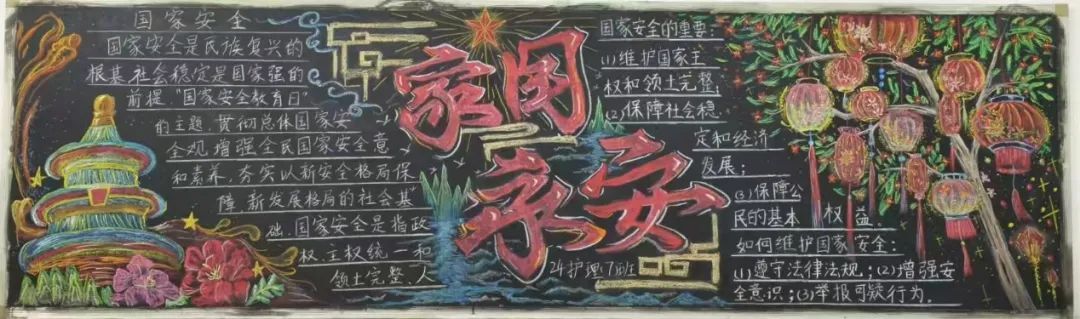 国家安全
国家安全是民族复兴的
根基,社会稳定是国家强的
前提"国家安全教育日"
的主题.贯彻总体国家安
全观增强全民国家安全意
和素养,夯实以新安全格局保
障,新发展格局的社会基
础.国家安全是指政
权、主权统一和
领土完整、人
家国
永安
24护理(7)班
国家安全的重要:
(1)维护国家主
权和领土完整
(2)保障社会稳
定和经济
发展;
(3)保障公
民的基本权益.
如何维护国家安全:
(1)遵守法律法规;(2)增强安
全意识;(3)举报可疑行为.